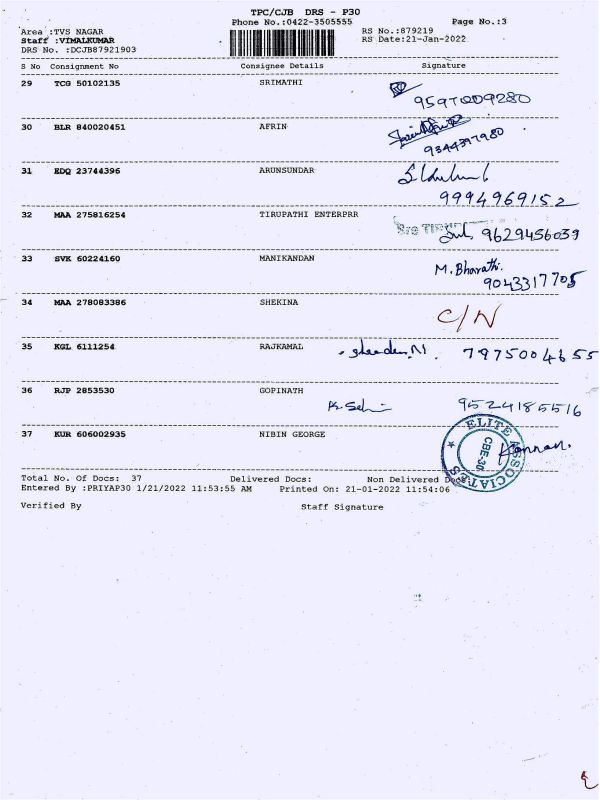 TPC/CJB DRS - P30
Phone No.:0422-3505555 Page No.:3
Area :TVS NAGAR RS No.:879219
Staff :VIMALKUMAR RS Date:21-Jan-2022
DRS No. :DCJB87921903
S No Consignment No Consignee Details Signature
29 TCG 50102135 SRIMATHI
9597009280
30 BLR 840020451 AFRIN
9344397980
31 EDQ 23744396 ARUNSUNDAR
9994969152
32 MAA 275816254 TIRUPATHI ENTERPRR
9629456039
33 SVK 60224160 MANIKANDAN
M. Bharathi.
9043317705
34 MAA 278083386 SHEKINA
C/N
35 KGL 6111254 RAJKAMAL
7975004655
36 RJP 2853530 GOPINATH
9524185516
37 KUR 606002935 NIBIN GEORGE
ELITE ASSOCIATES
CBE-30
Kannan.
Total No. Of Docs: 37 Delivered Docs: Non Delivered Docs:
Entered By :PRIYAP30 1/21/2022 11:53:55 AM Printed On: 21-01-2022 11:54:06
Verified By Staff Signature